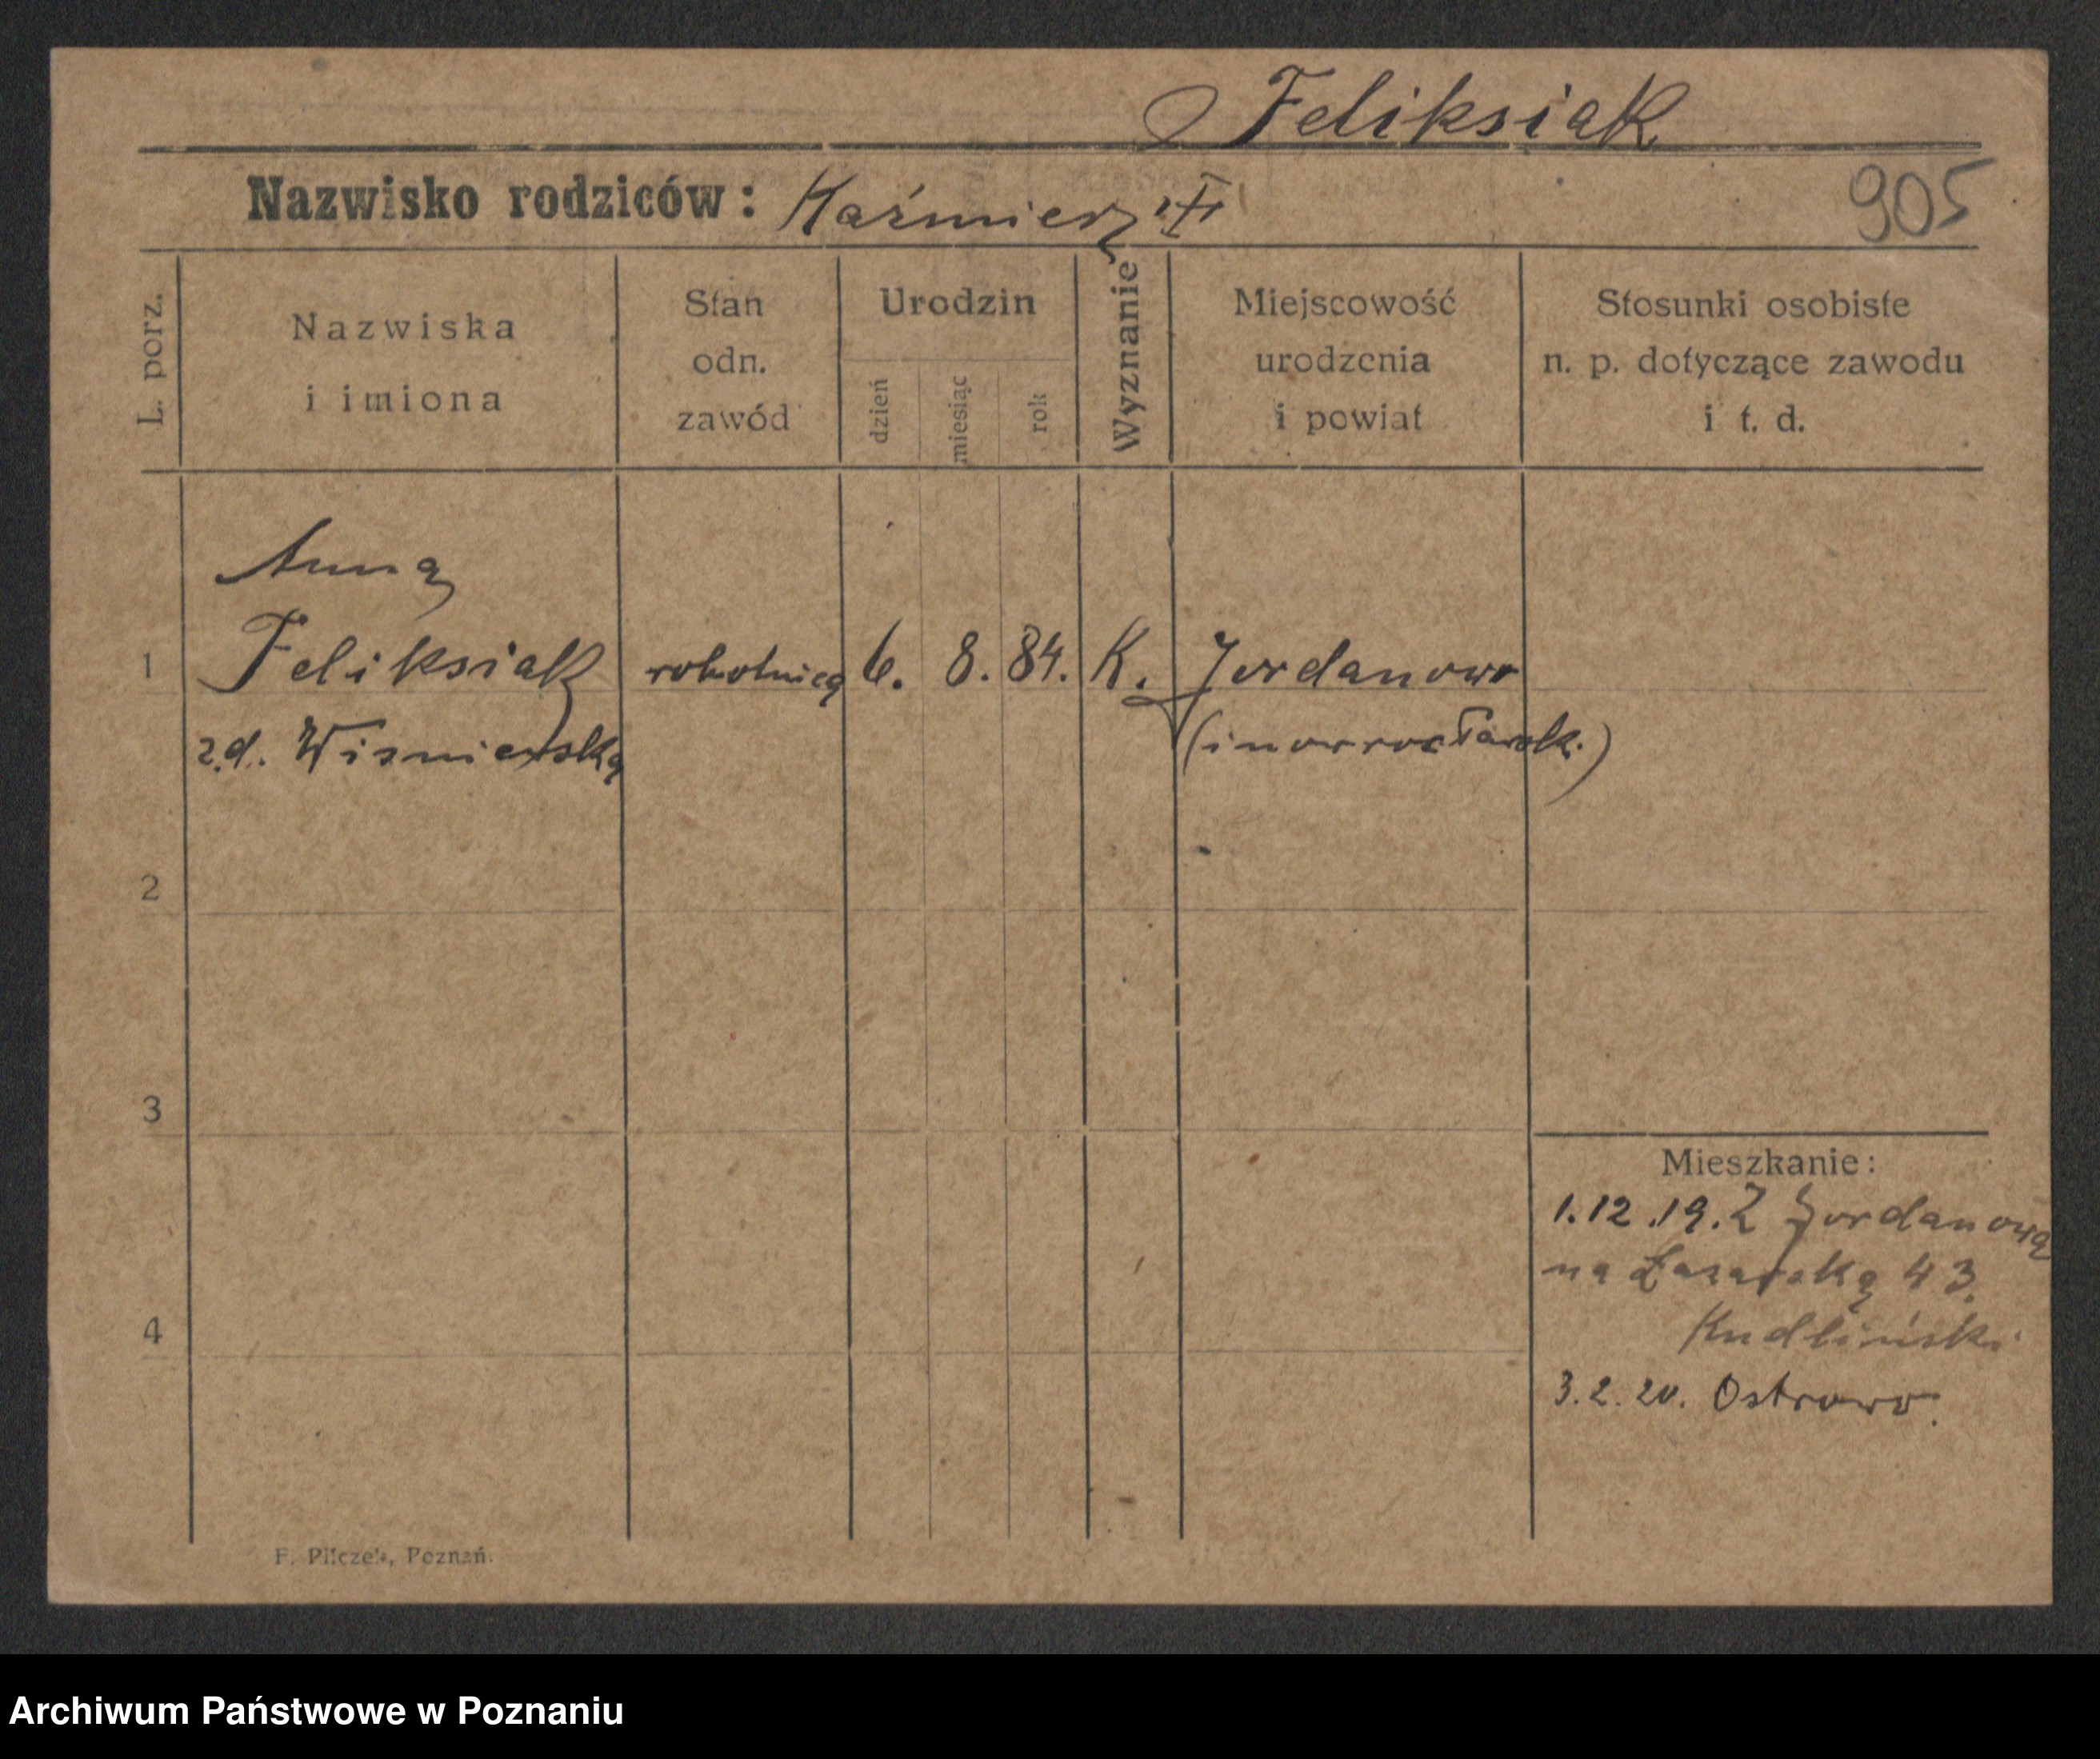 Feliksiak
Nazwisko rodziców: Kaźmierz
905
L. porz.
Nazwiska
i imiona
Stan
odn.
zawód
Urodzin
dzień
miesiąc
rok
Wyznanie
Miejscowość
urodzenia
i powiat
Stosunki osobiste
n. p. dotyczące zawodu
i t. d.
Anna
1 Feliksiak robotnica 6. 8. 84. K. Jordanowo
z d. Wisniewska (inowrocławsk.)
2
3
4
Mieszkanie:
1.12.19. Z Jordanowa
na Łazarską 43.
Kudliński
3.2.20. Ostrowo.
F. Pilczek, Poznań.
Archiwum Państwowe w Poznaniu